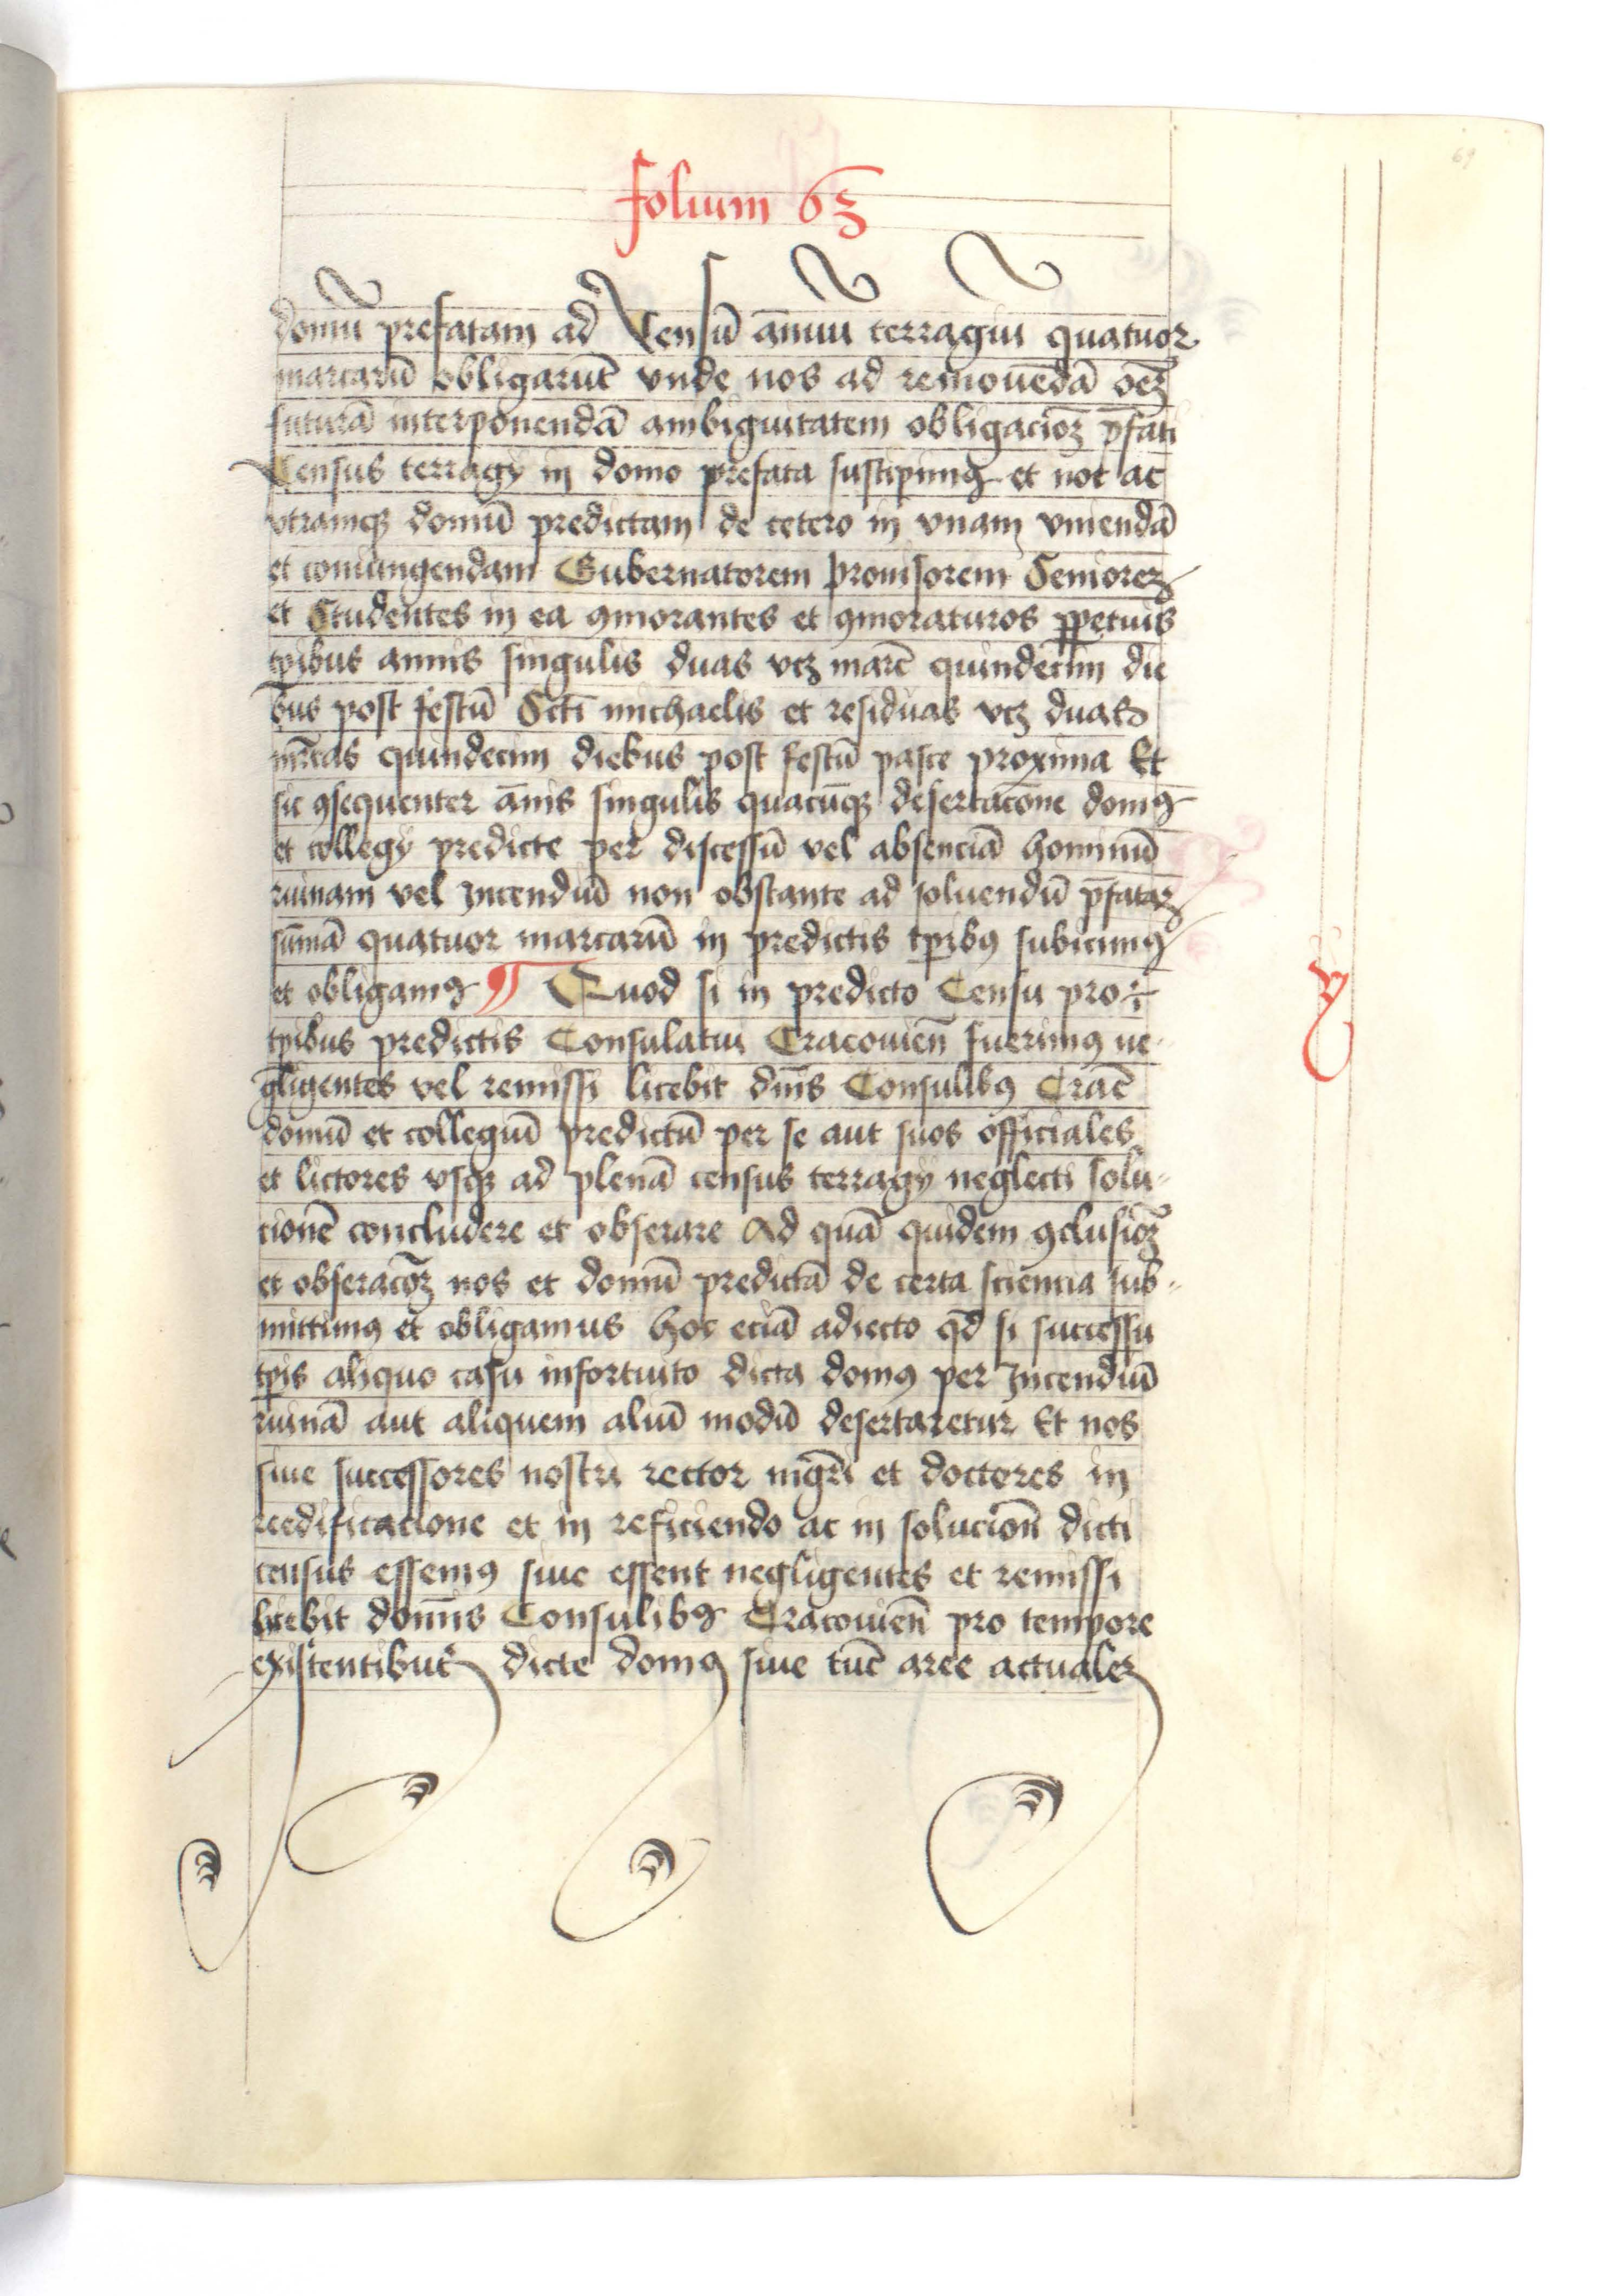 69
folium 63
domū prefatam ad Censū annuū terragiu quatuor
marcarū obligarūt vnde nos ad remouēdā oēȝ
futurā interponendā ambiguitatem obligacioȝ p̄fati
Census terragy in domo prefata suscipimꝯ et nos ac
vtramqȝ domū predictam de cetero in vnam vniendā
et coniungendam Gubernatorem prouisorem Senioreȝ
et Studentes in ea ꝯmorantes et ꝯmoraturos ꝑpetuis
tp̄ibus annis singulis duas vcȝ marc̄ quindecim die
bus post festū Sc̄ti michaelis et residuas vcȝ duas
mr̄cas quindecim diebus post festū pasce proxima Et
sic ꝯsequenter ānis singulis quacūqȝ desertacōne domꝯ
et collegy predicte per discessū vel absenciā hominū
ruinam vel Incendiū non obstante ad soluendū p̄fataȝ
sūmā quatuor marcarū in predictis tp̄ibꝯ subicimꝯ
et obligamꝯ ¶ Quod si in predicto Censu pro
tp̄ibus predictis Consulatui Cracouien̄ fuerimꝯ ne-
gligentes vel remissi licebit dn̄is Consulibꝯ Crac̄
domū et collegiū predictū per se aut suos officiales
et lictores vsqȝ ad plenā census terragy neglecti solu-
cionē concludere et obserare Ad quā quidem ꝯclusioȝ
et obseracōȝ nos et domū predictā de certa sciencia sub-
mittimꝯ et obligamus hoc eciā adiecto qd̄ si successu
tp̄is aliquo casu infortuito dicta domꝯ per Incendiū
ruinā aut aliquem aliū modū desertaretur Et nos
siue successores nostri rector mgr̄i et doctores in
reedificacione et in reficiendo ac in solucion̄ dicti
census essemꝯ siue essent negligentes et remissi
licebit domīs Consulibꝯ Cracouien̄ pro tempore
existentibus dicte domꝯ siue tūc aree actualeȝ